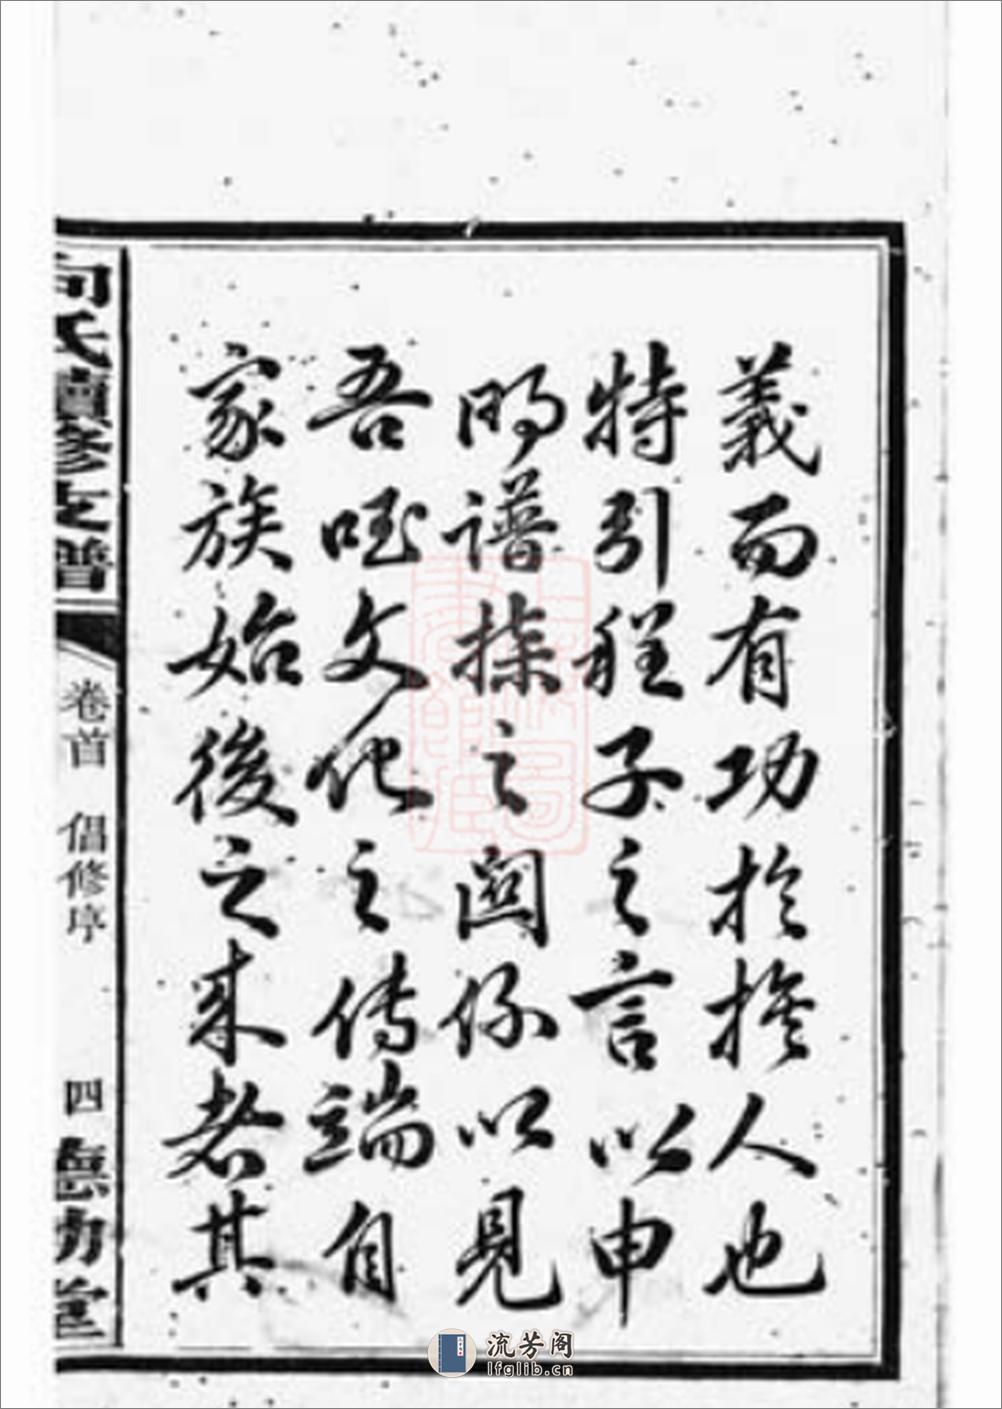 義而有功於族人也
特引程子之言以申
明譜操之關係以見
吾啀文化之傳端自
家族始後之来者其
向氏續修支譜
卷首 倡修序
四
流芳阁
lfglib.cn